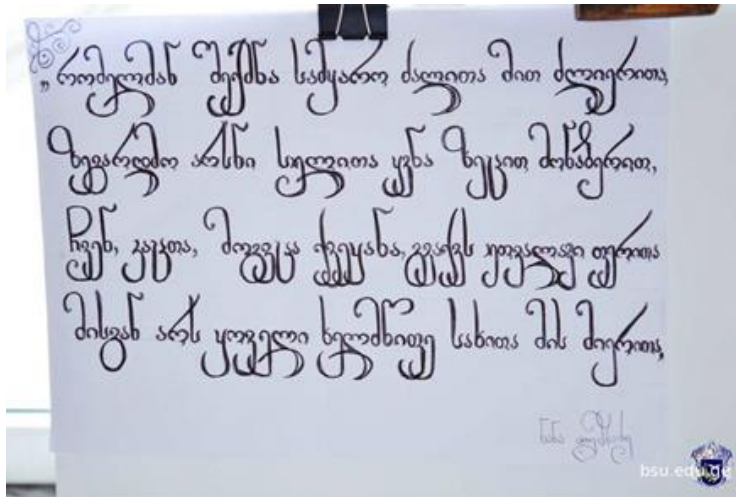 „რომელმან შექმნა სამყარო ძალითა მით ძლიერითა,
ზეგარდმო არსნი სულითა ყვნა ზეცით მონაბერითა,
ჩვენ, კაცთა, მოგვცა ქვეყანა, გვაქვს უთვალავი ფერითა
მისგან არს ყოველი ხელმწიფე სახითა მის მიერითა,
ნანა
bsu.edu.ge